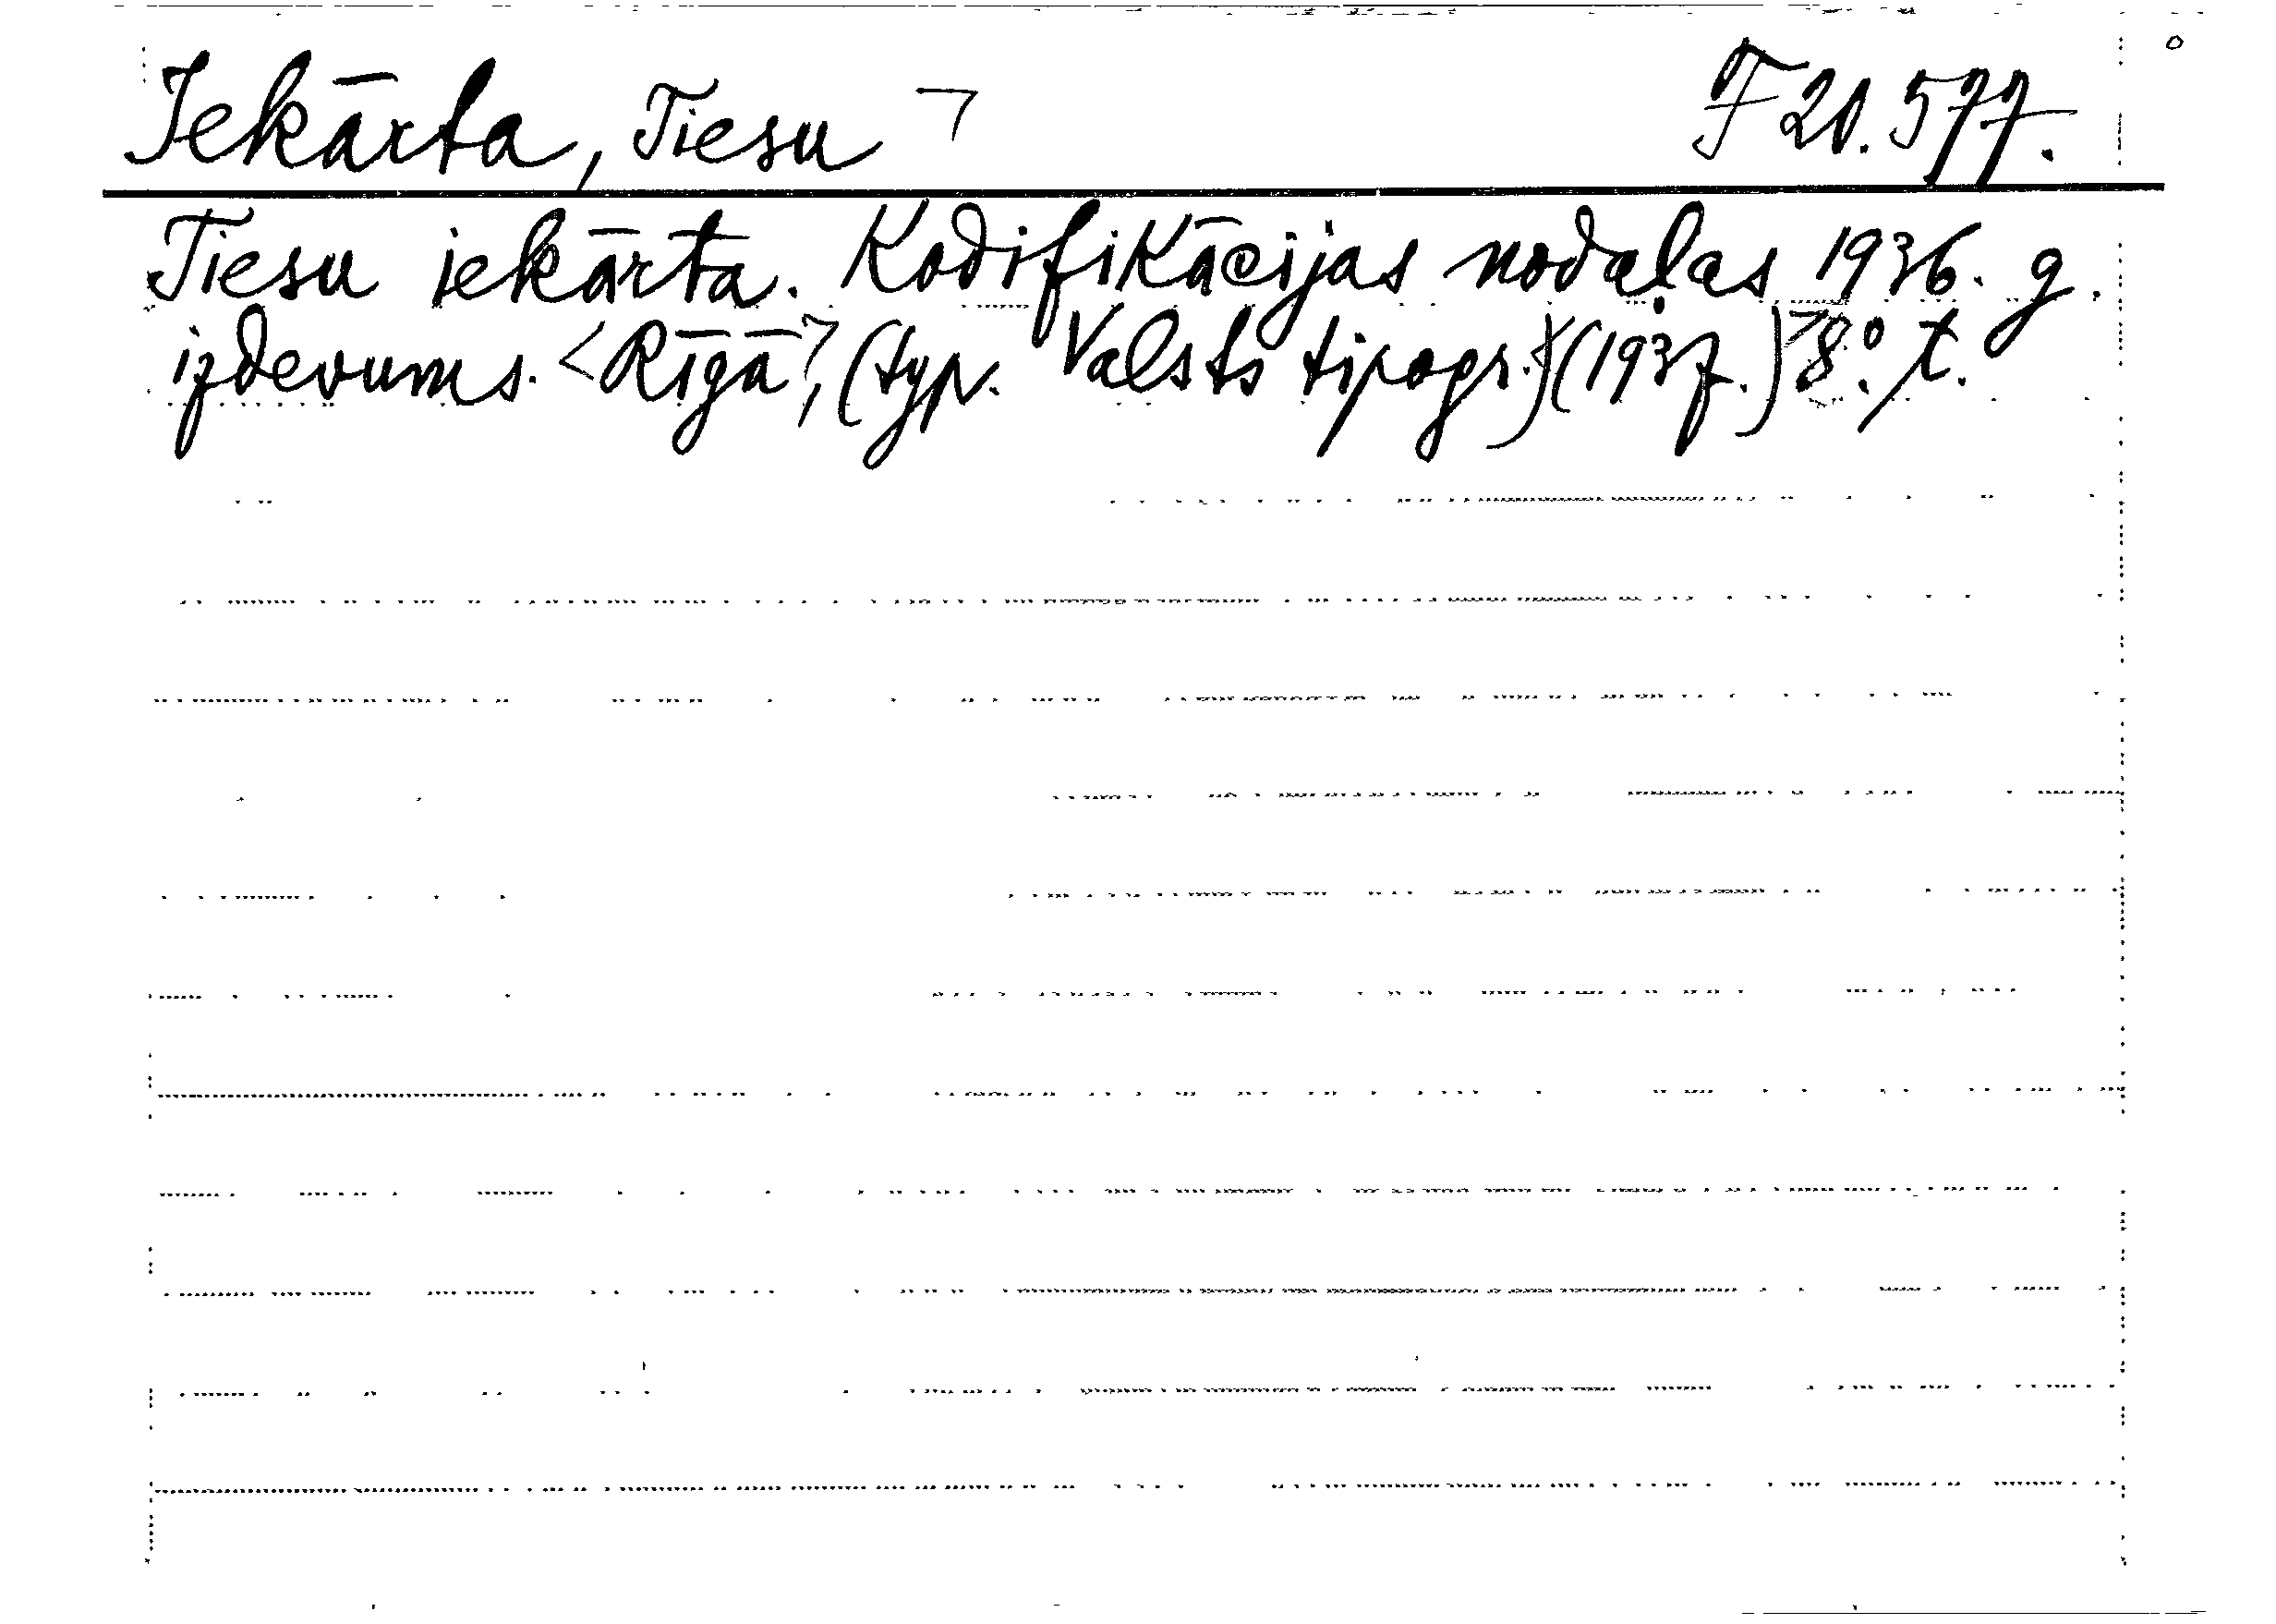 Iekārta, Tiesu ¬ F 20.577.
Tiesu iekārta. Kodifikācijas nodaļas 1936. g.
izdevums. <Rīgā>, (typ. Valsts tipogr.)(1937.)> 8.° t.